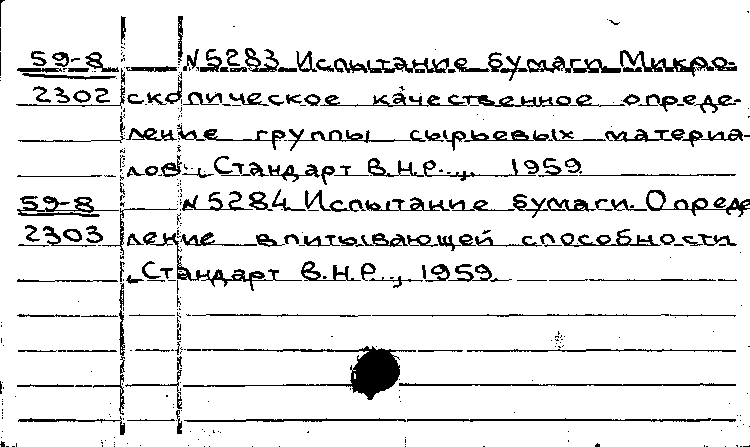 59-8 N 5283 Испытание бумаги. Микро-
2302 скопическое качественное опреде-
ление группы сырьевых материа-
лов. „Стандарт В.Н.Р.„, 1959
59-8 N 5284 Испытание бумаги. Опреде
2303 ление впитывающей способности
„Стандарт В.Н.Р.„, 1959.